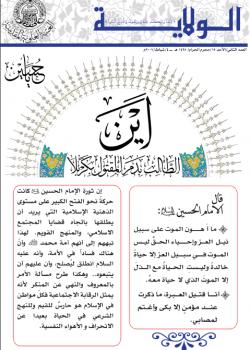 الولاية
حسينين
أين
الطالب بدم المقتول بكربلاء
قال
الإمام الحسين
ما أهون الموت على سبيل
نيل العز وإحياء الحق ليس
الموت في سبيل العز إلا حياة
خالدة وليست الحياة مع الذل
إلا الموت الذي لا حياة معه.
أنا قتيل العبرة، ما ذكرت
عند مؤمن إلا بكى واغتم
لمصابي.
إن ثورة الإمام الحسين كانت
حركة نحو الفتح الكبير على مستوى
الذهنية الإسلامية التي يريد أن
يطلقها باتجاه قضايا المجتمع
الإسلامي، والمنهج القويم. لهذا
نبههم إلى أنهم أمة محمد وأن
هناك فساداً في الأمة، وأنه عليه
السلام انطلق ليصلح، وأن عليهم أن
يتبعوه.. وهكذا طرح مسألة الأمر
بالمعروف والنهي عن المنكر لأنه
يمثل الرقابة الاجتماعية فكل مواطن
في الإسلام هو حارس للقيم وللنهج
الشرعي في الحياة بعيدا عن
الانحراف و الأهواء النفسية.